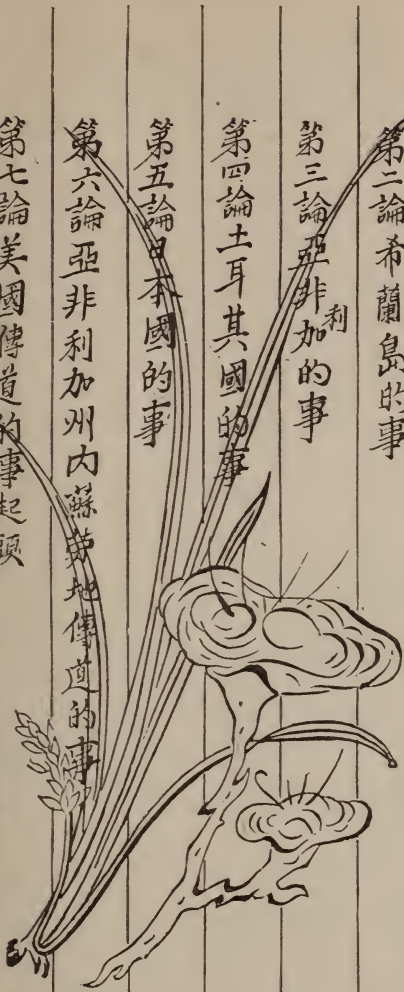 第二論希蘭島的事
第三論亞非利加的事
第四論土耳其國的事
第五論日本國的事
第六論亞非利加州内蘇地傳道的事
第七論美國傳道的事起頭